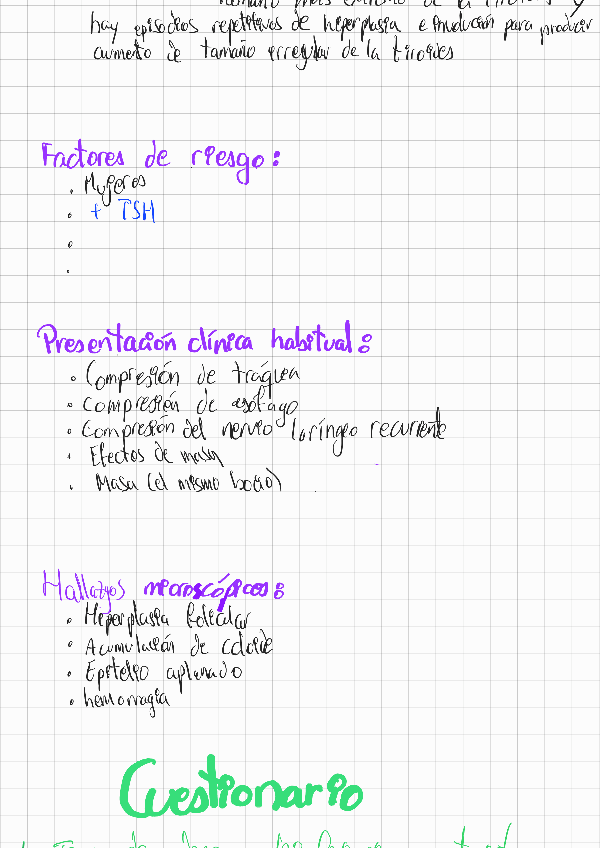 hay episodios repetitivos de hiperplasia e involución para producir
aumento de tamaño irregular de la tiroides
Factores de riesgo:
• Mujeres
• + TSH
•
•
Presentación clínica habitual:
• Compresión de tráquea
• Compresión de esófago
• Compresión del nervio laríngeo recurrente
• Efectos de masa
• Masa (el mismo bocio)
Hallazgos microscópicos:
• Hiperplasia folicular
• Acumulación de coloide
• Epitelio aplanado
• hemorragia
Cuestionario